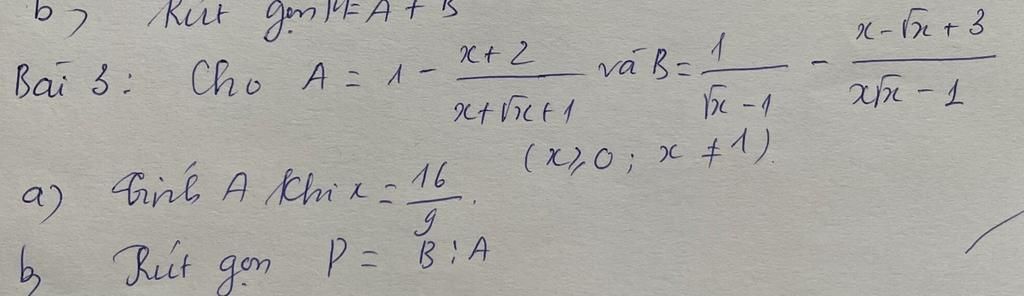 b) Rút gọn M = A + B
Bài 3: Cho A = 1 - \frac{x+2}{x+\sqrt{x}+1} và B = \frac{1}{\sqrt{x}-1} - \frac{x-\sqrt{x}+3}{x\sqrt{x}-1}
(x ⩾ 0; x ≠ 1).
a) Tính A khi x = \frac{16}{9}.
b) Rút gọn P = B : A